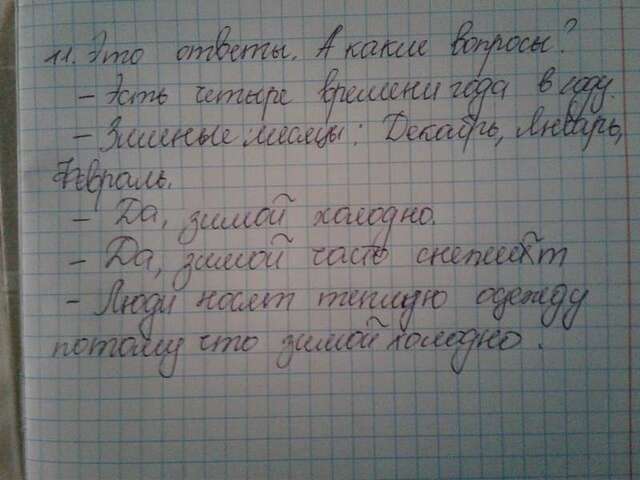 11. Это ответы. А какие вопросы?
- Есть четыре времени года в году.
- Зимные месяцы: Декабрь, Январь,
Февраль.
- Да, зимой холодно.
- Да, зимой часто снег идёт
- Люди носят тёплую одежду
потому что зимой холодно.